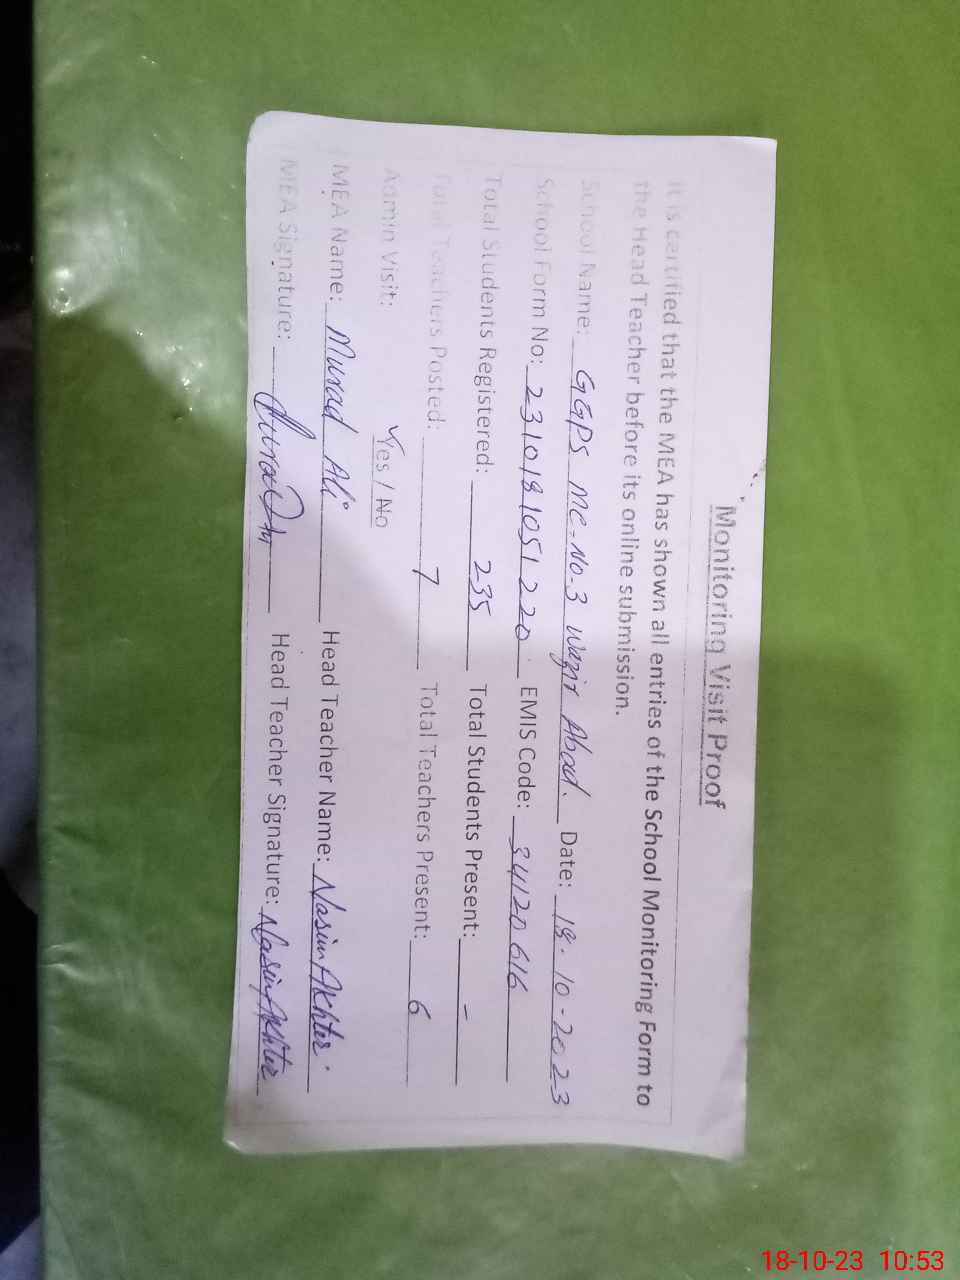 Monitoring Visit Proof
It is certified that the MEA has shown all entries of the School Monitoring Form to
the Head Teacher before its online submission.
School Name: GGPS MC-No-3 Wazir Abad. Date: 18-10-2023
School Form No: 231018105122 0 EMIS Code: 34120616
Total Students Registered: 235 Total Students Present: -
Total Teachers Posted: 7 Total Teachers Present: 6
Admin Visit: Yes / No
MEA Name: Murad Ali Head Teacher Name: Nasim Akhter.
MEA Signature: Head Teacher Signature: Nasim Akhter
18-10-23 10:53